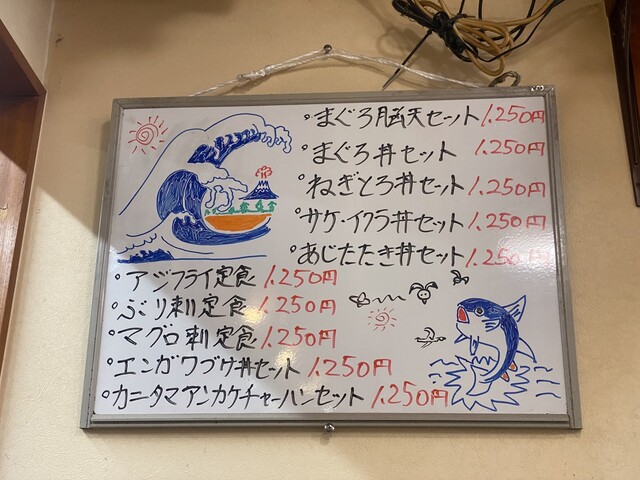 ・まぐろ脳天セット 1.250円
・まぐろ丼セット 1.250円
・ねぎとろ丼セット 1.250円
・サケ・イクラ丼セット 1.250円
・あじたたき丼セット 1.250円
・アジフライ定食 1.250円
・ぶり刺定食 1.250円
・マグロ刺定食 1.250円
・エンガワづけ丼セット 1.250円
・カニタマアンカケチャーハンセット 1.250円